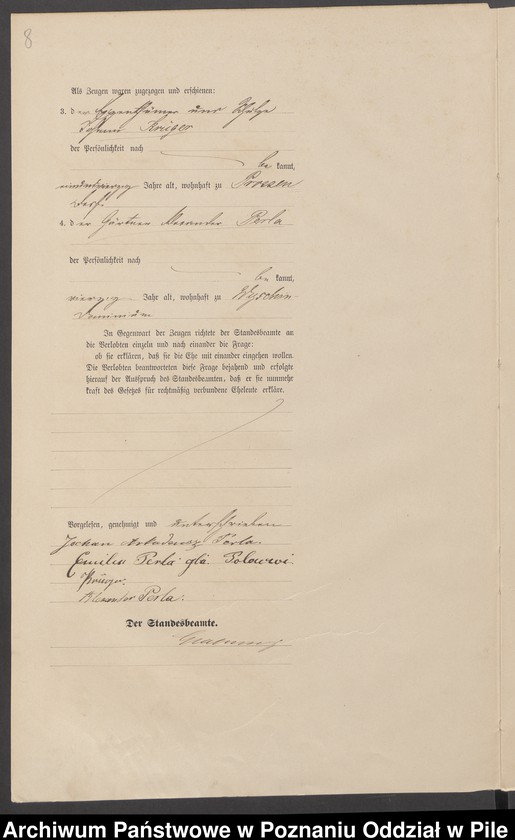 8
Als Zeugen waren zugezogen und erschienen:
3. der Eigenthümer und
Johann Krüger
der Persönlichkeit nach
be kannt,
Jahre alt, wohnhaft zu
Dorf
4. der Gärtner Alexander Perla
der Persönlichkeit nach
be kannt,
vierzig Jahr alt, wohnhaft zu Wyschin-
Dominium
In Gegenwart der Zeugen richtete der Standesbeamte an
die Verlobten einzeln und nach einander die Frage:
ob sie erklären, daß sie die Ehe mit einander eingehen wollen.
Die Verlobten beantworteten diese Frage bejahend und erfolgte
hierauf der Ausspruch des Standesbeamten, daß er sie nunmehr
kraft des Gesetzes für rechtmäßig verbundene Eheleute erkläre.
Vorgelesen, genehmigt und unterschrieben
Perla.
Perla
Krüger.
Alexander Perla.
Der Standesbeamte.
Archiwum Państwowe w Poznaniu Oddział w Pile